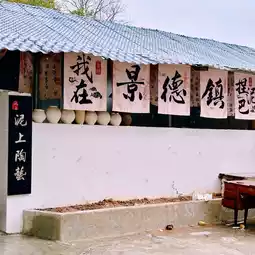 我在景德镇捏巴泥
泥上陶藝